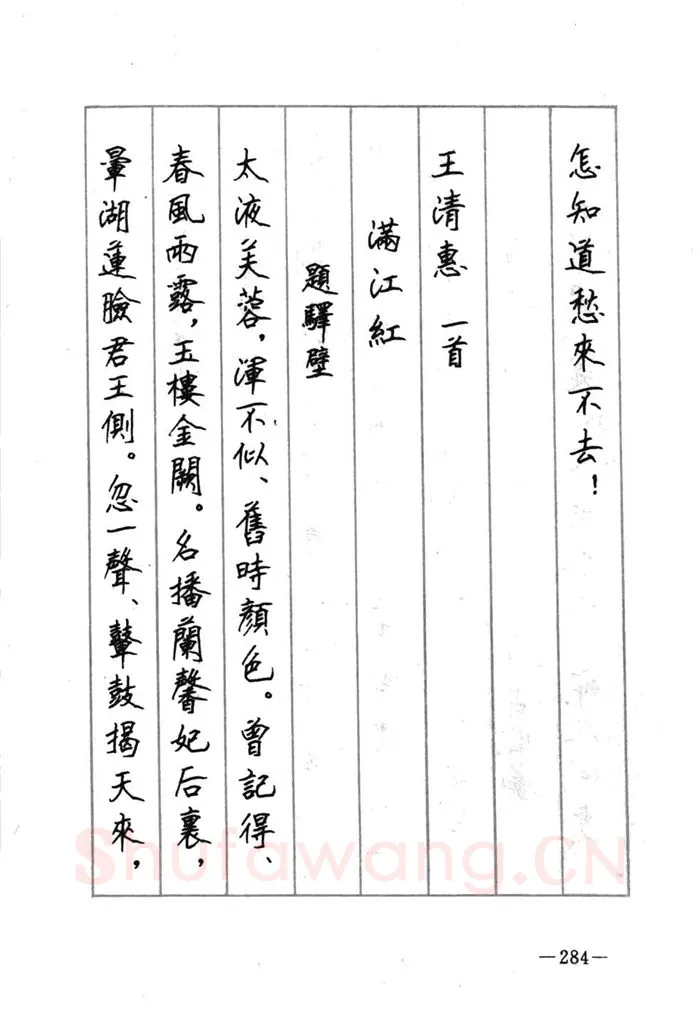 怎知道愁來不去！
王清惠　一首
滿江紅
題驛壁
太液芙蓉，渾不似、舊時顏色。曾記得、
春風雨露，玉樓金闕。名播蘭馨妃后裏，
暈湖蓮臉君王側。忽一聲、鼙鼓揭天來，
Shufawang.CN
—284—